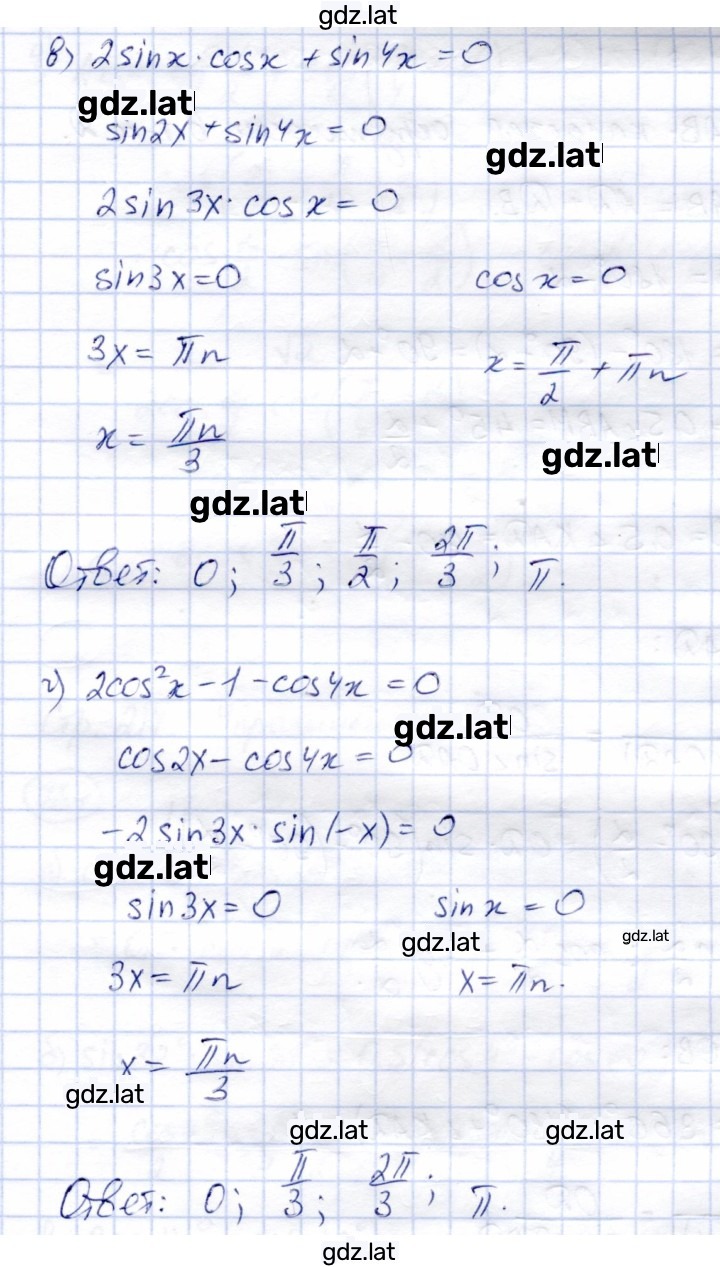 gdz.lat
в) 2sinx·cosx + sin4x = 0
gdz.lat
sin2x + sin4x = 0
gdz.lat
2sin3x·cosx = 0
sin3x = 0 cosx = 0
3x = πn x = π/2 + πn
x = πn/3
gdz.lat
gdz.lat
Ответ: 0; π/3; π/2; 2π/3; π.
г) 2cos²x - 1 - cos4x = 0
gdz.lat
cos2x - cos4x = 0
-2sin3x·sin(-x) = 0
gdz.lat
sin3x = 0 sinx = 0
gdz.lat gdz.lat
3x = πn x = πn.
x = πn/3
gdz.lat
gdz.lat gdz.lat
Ответ: 0; π/3; 2π/3; π.
gdz.lat